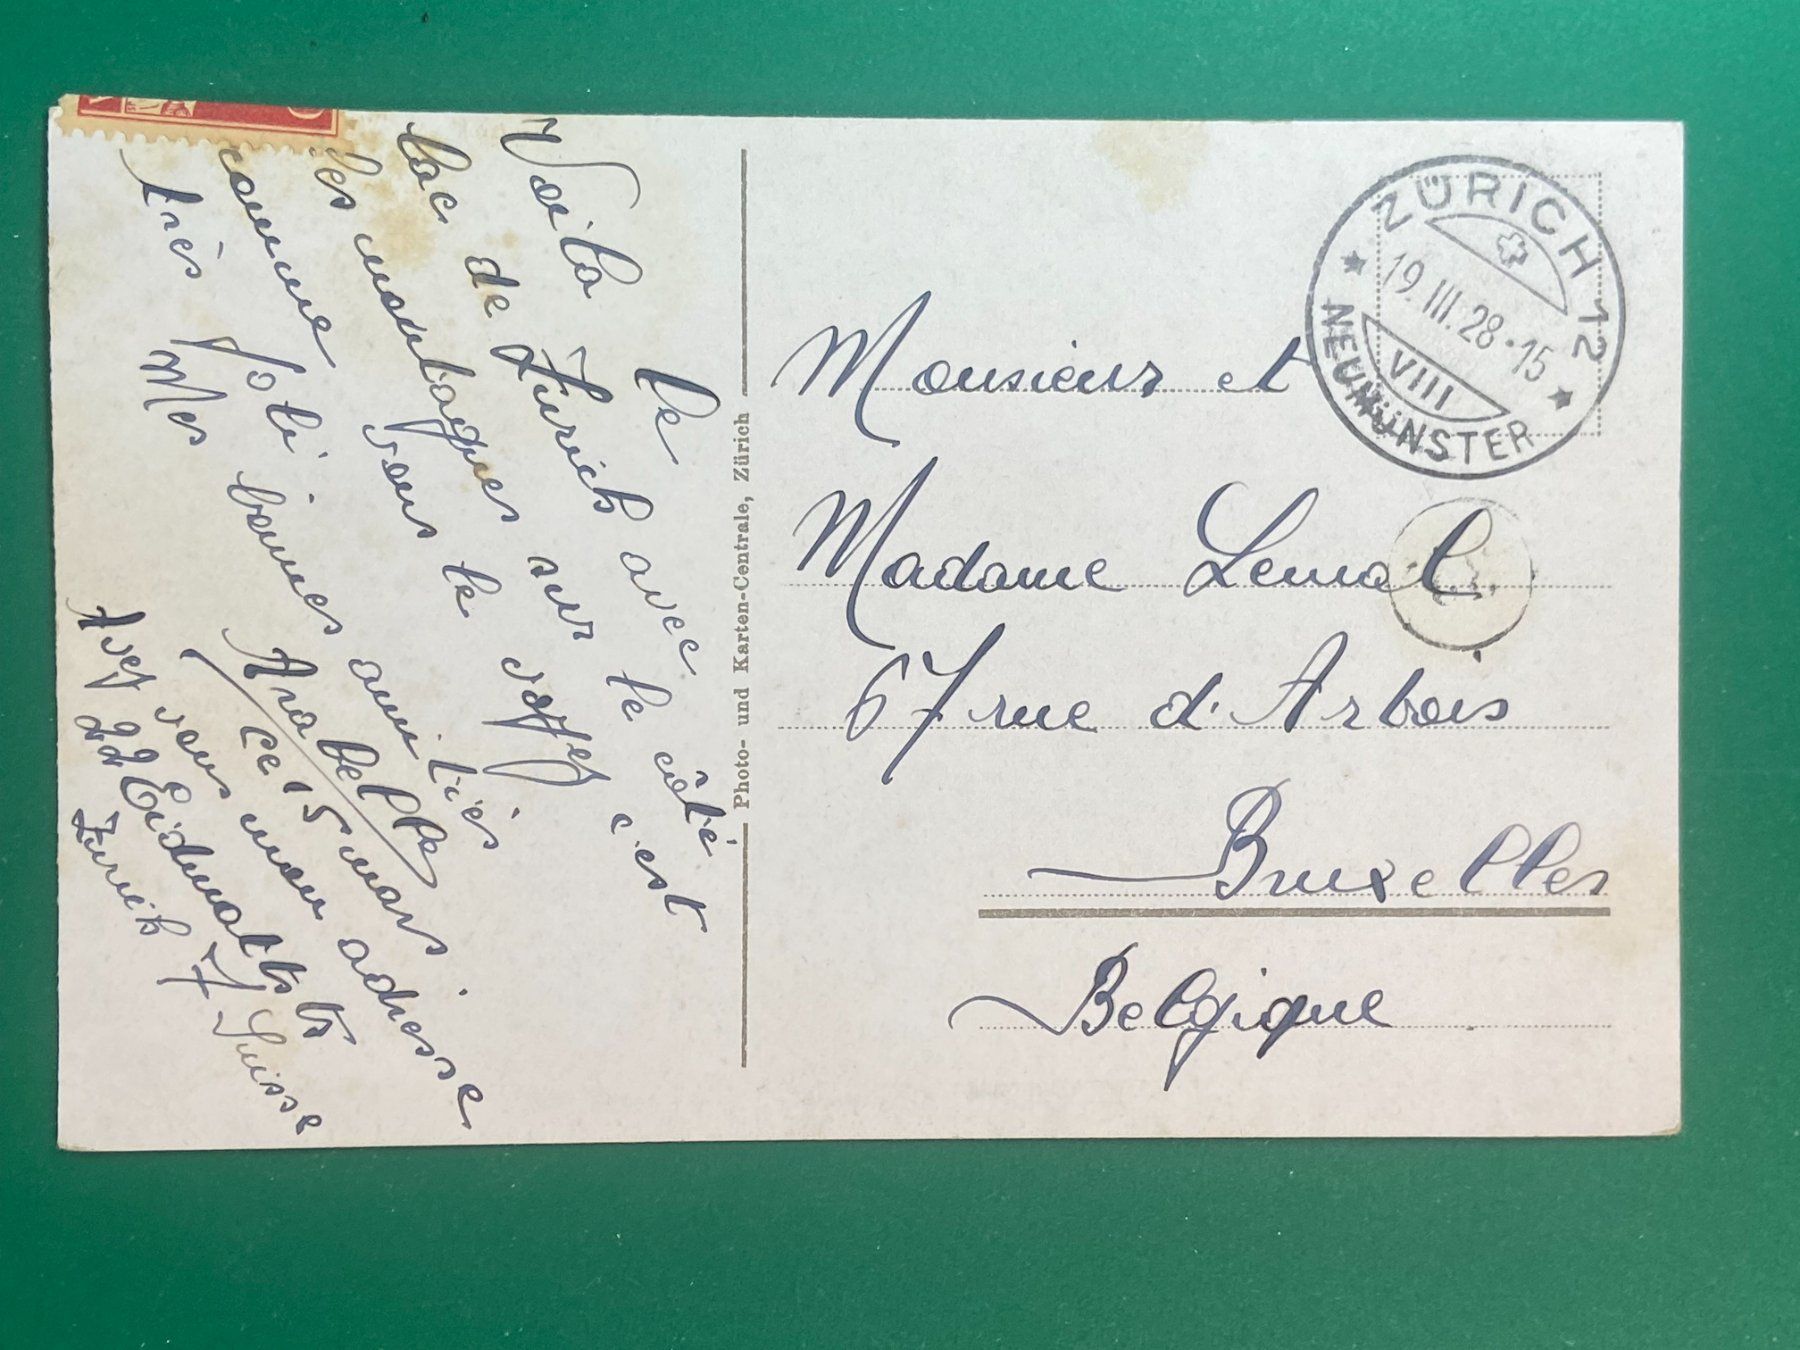 Voila le
lac de Zurich avec
les montagnes sur le côté
comme vous le voyez c'est
très joli
Mes bonnes amitiés
Arabelle
ce 15 mars.
Avez vous mon adresse
22 Eidmattstr
Zurich 7 Suisse
Photo- und Karten-Centrale, Zürich
ZÜRICH 12
19.III.28-15
VIII
NEUMÜNSTER
Monsieur et
Madame Lemal
67 rue d'Arbois
Bruxelles
Belgique